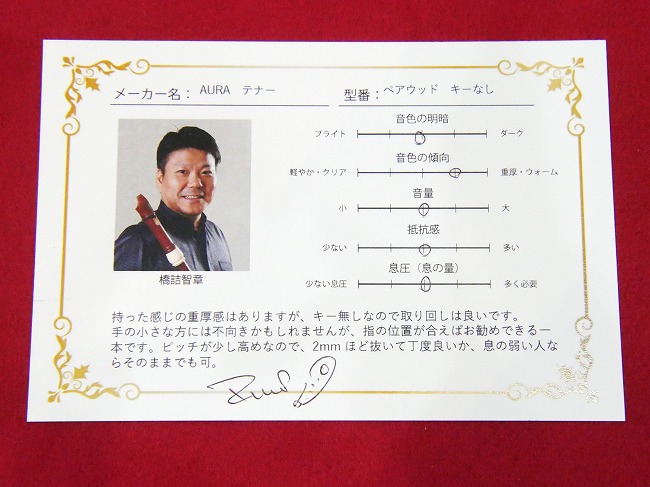 メーカー名： AURA テナー
型番：ペアウッド キーなし
音色の明暗
ブライト ダーク
音色の傾向
軽やか・クリア 重厚・ウォーム
音量
小 大
抵抗感
少ない 多い
息圧（息の量）
少ない息圧 多く必要
橋詰智章
持った感じの重厚感はありますが、キー無しなので取り回しは良いです。
手の小さな方には不向きかもしれませんが、指の位置が合えばお勧めできる一
本です。ピッチが少し高めなので、2mm ほど抜いて丁度良いか、息の弱い人な
らそのままでも可。